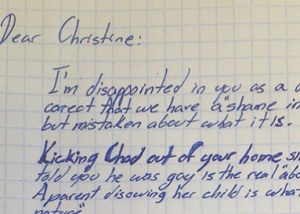 Dear Christine:
I'm disappointed in you as a
corect that we have a "shame in
but mistaken about what it is.
Kicking Chad out of your home
told you he was gay is the real "abo
A parent disowning her child is what
nature"